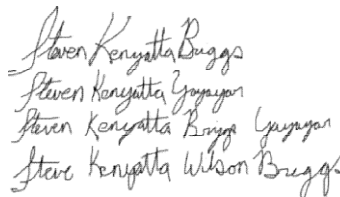 Steven Kenyatta Buggs
Steven Kenyatta Yayayar
Steven Kenyatta Briggs Yayayar
Steve Kenyatta Wilson Breggs